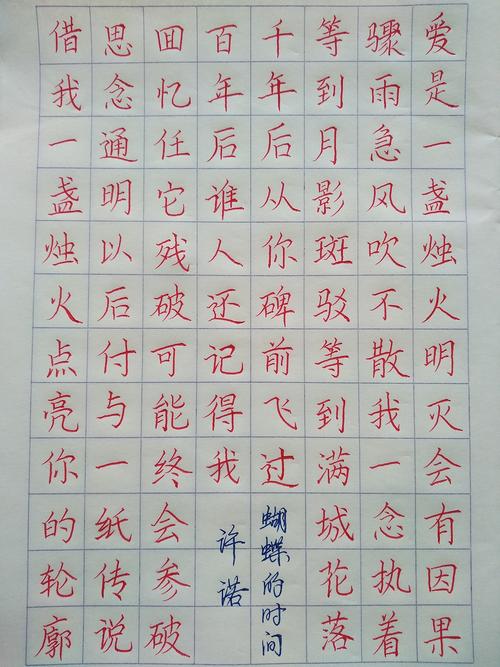 爱是一盏烛火明灭会有因果
骤雨急风吹不散我一念执着
等到月影斑驳等到满城花落
千年后从你碑前飞过
蝴蝶的时间
百年后谁人还记得我
许诺
囬忆任它残破可能终会参破
思念通明以后付与一纸传说
借我一盏烛火点亮你的轮廓